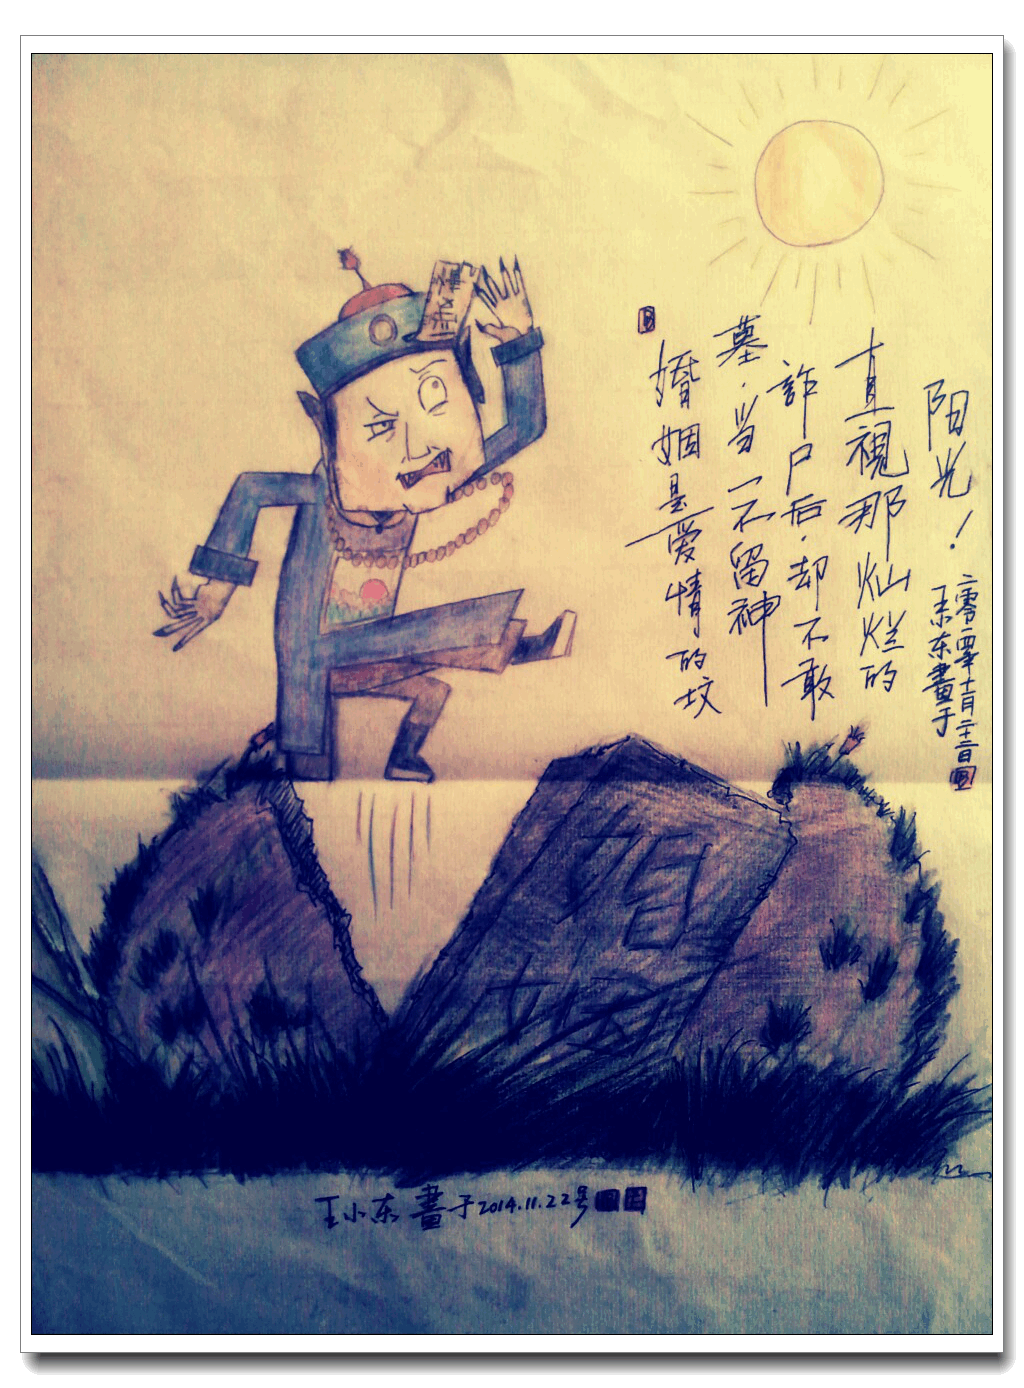 婚姻是爱情的坟
墓.当一不留神
詐尸后.却不敢
直視那灿烂的
阳光！
王小东畫于
二零一四年十一月二十二日
王小东畫于2014.11.22号